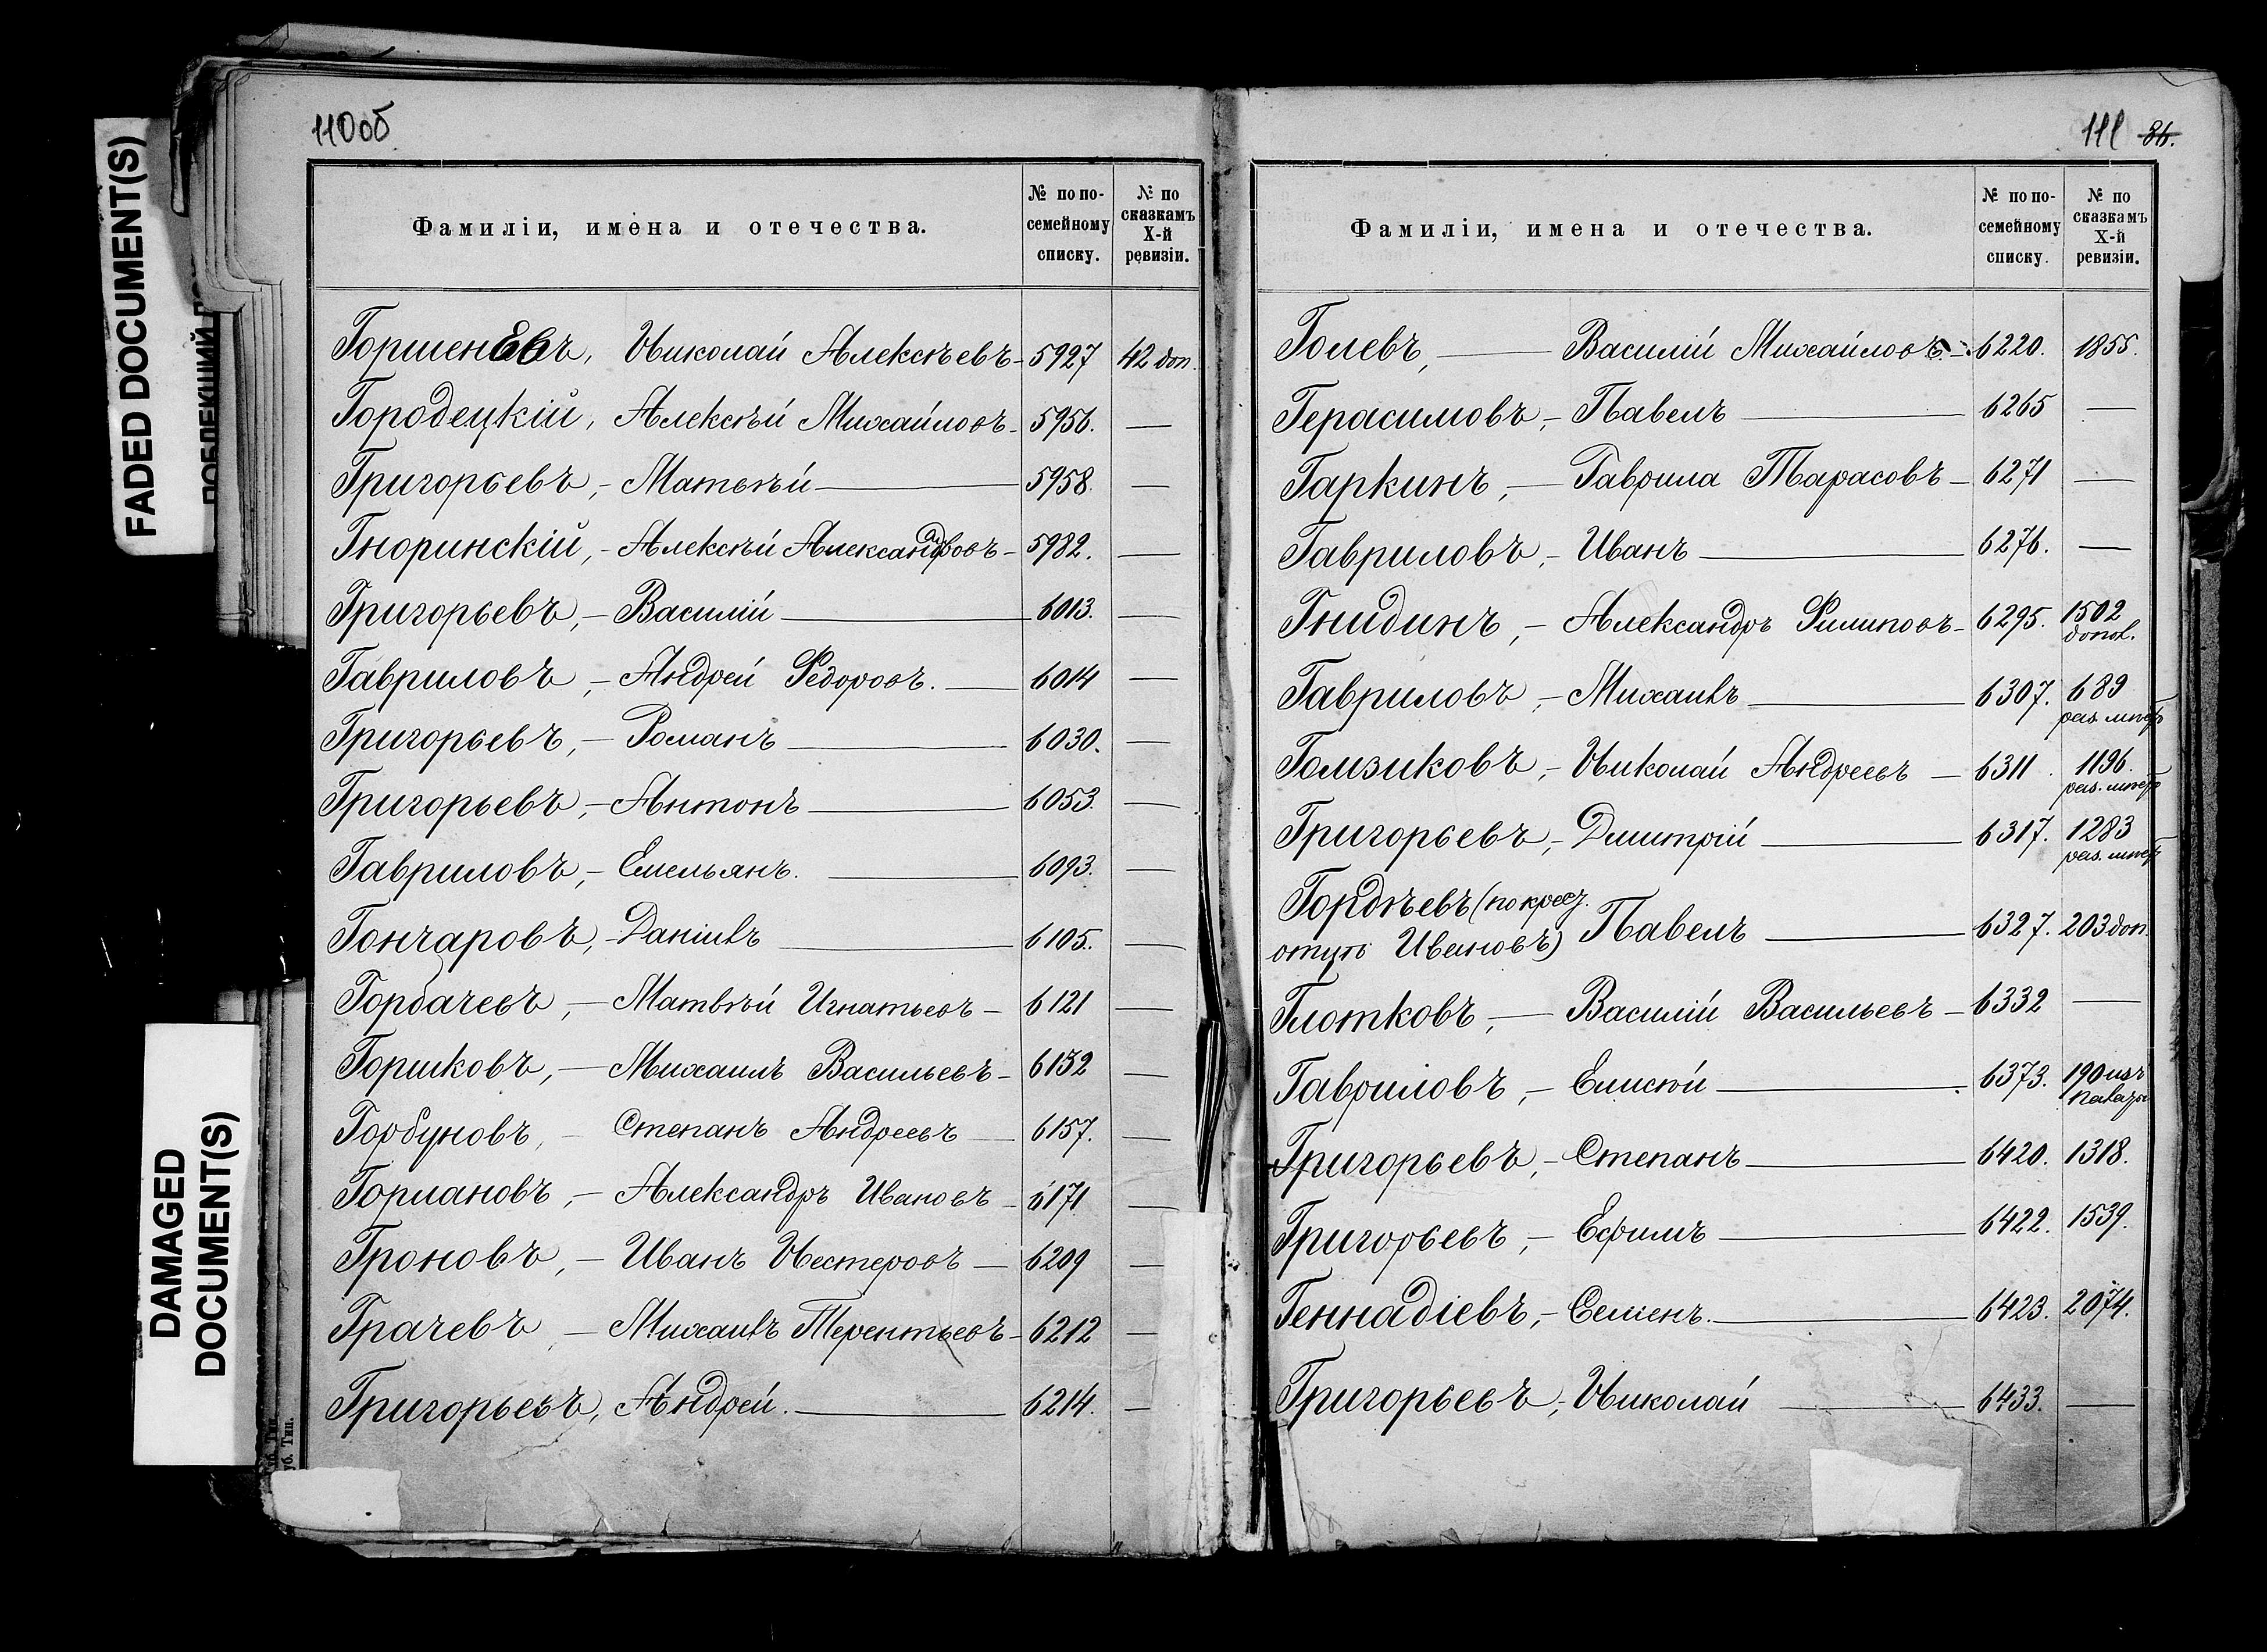 FADED DOCUMENT(S)
DAMAGED
DOCUMENT(S)
110об
Фамиліи, имена и отечества.
№ по по-
семейному
списку.
№ по
сказкамъ
X-й
ревизіи.
Горшеневъ, Николай Алексѣевъ - 5927 42 доп.
Городецкій, Алексѣй Михайловъ - 5956. —
Григорьевъ, - Матвѣй — 5958. —
Гноринскій, - Алексѣй Александровъ - 5982. —
Григорьевъ, - Василій — 6013. —
Гавриловъ, - Андрей Федоровъ. — 6014 —
Григорьевъ, - Романъ — 6030. —
Григорьевъ, - Антонъ — 6053. —
Гавриловъ, - Емельянъ. — 6093. —
Гончаровъ, - Даніилъ — 6105. —
Горбачевъ, - Матвѣй Игнатьевъ - 6121 —
Горшковъ, - Михаилъ Васильевъ - 6132 —
Горбуновъ, - Степанъ Андреевъ — 6157. —
Горшановъ, - Александръ Ивановъ - 6171 —
Гроновъ, - Иванъ Нестеровъ — 6209 —
Грачевъ, - Михаилъ Терентьевъ - 6212 —
Григорьевъ, Андрей. — 6214. —
111 86.
Фамиліи, имена и отечества.
№ по по-
семейному
списку.
№ по
сказкамъ
X-й
ревизіи.
Голевъ, — Василій Михайловъ. - 6220. 1855.
Герасимовъ, - Павелъ — 6265 —
Гаркинъ, — Гаврила Тарасовъ - 6271 —
Гавриловъ, - Иванъ — 6276. —
Гнидинъ, - Александръ Филиповъ - 6295. 1502
допол.
Гавриловъ, - Михаилъ — 6307. 689
Гомзиковъ, - Николай Андреевъ — 6311. 1196.
Григорьевъ, - Димитрій — 6317. 1283
Гордѣевъ (по крест.
отцу Ивановъ) Павелъ — 6327. 203 доп.
Глотковъ, — Василій Васильевъ - 6332 —
Гавриловъ, - Елисѣй — 6373. 190 изъ
Григорьевъ, - Степанъ — 6420. 1318.
Григорьевъ, - Ефимъ — 6422. 1539.
Геннадіевъ, - Семенъ. — 6423. 2074.
Григорьевъ, - Николай — 6433. —